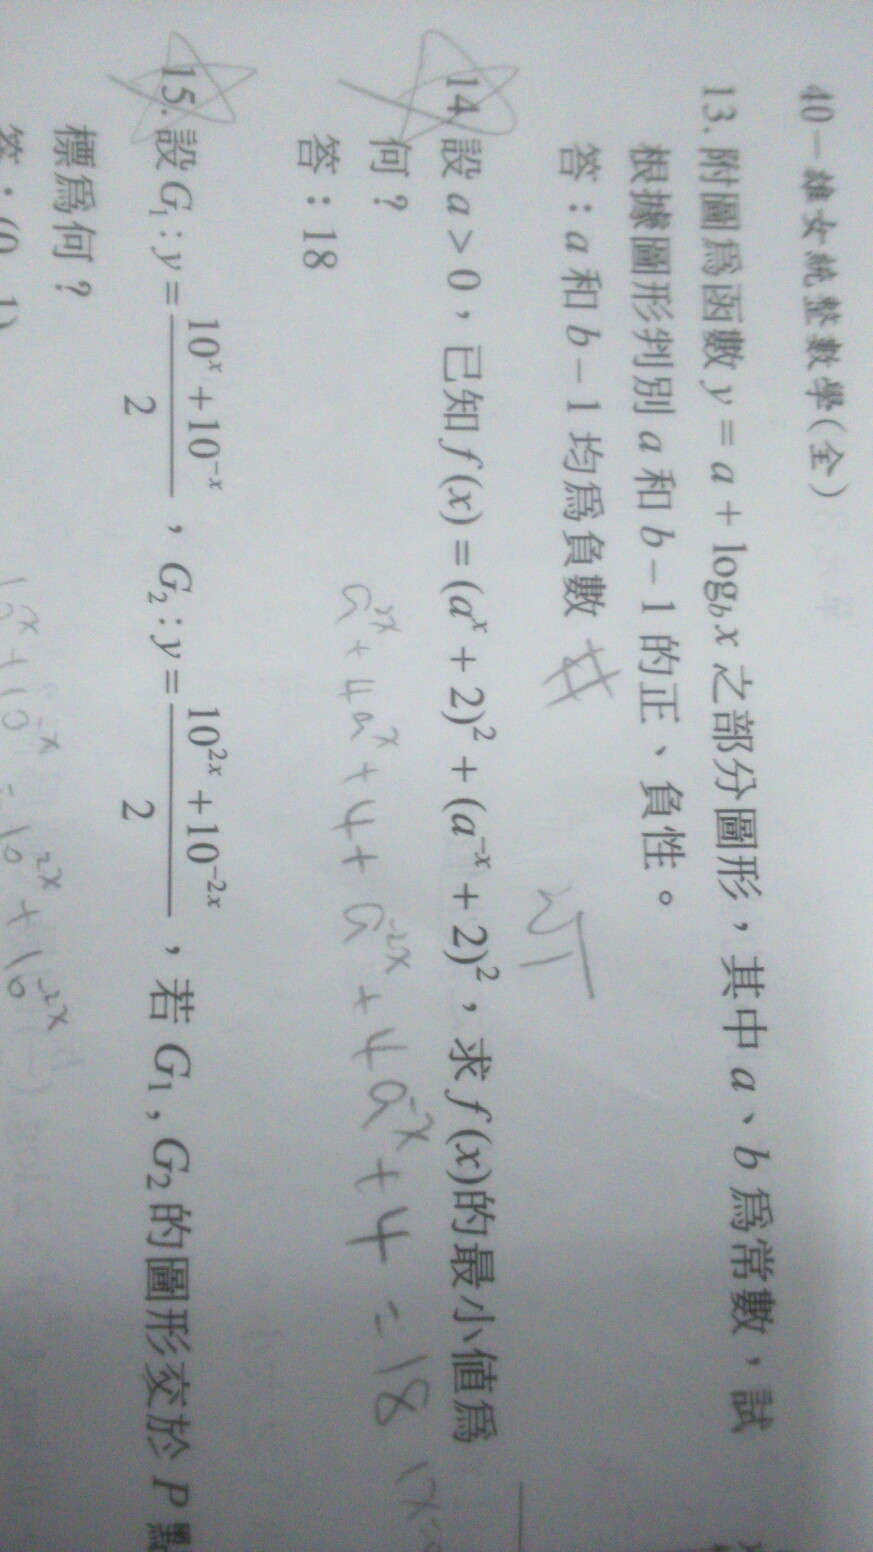 40－雄女統整數學(全)
13. 附圖為函數 y = a + log_b x 之部分圖形，其中 a、b 為常數，試
根據圖形判別 a 和 b − 1 的正、負性。
答：a 和 b − 1 均為負數
14. 設 a > 0，已知 f (x) = (a^x + 2)^2 + (a^{-x} + 2)^2，求 f (x)的最小值為
何？
a^{2x} + 4a^x + 4 + a^{-2x} + 4a^{-x} + 4 = 18
答：18
15. 設 G₁ : y = (10^x + 10^{-x})/2，G₂ : y = (10^{2x} + 10^{-2x})/2，若 G₁ , G₂ 的圖形交於 P 點
標為何？
10^x + 10^{-x} = 10^{2x} + 10^{-2x}
答：(0 , 1)